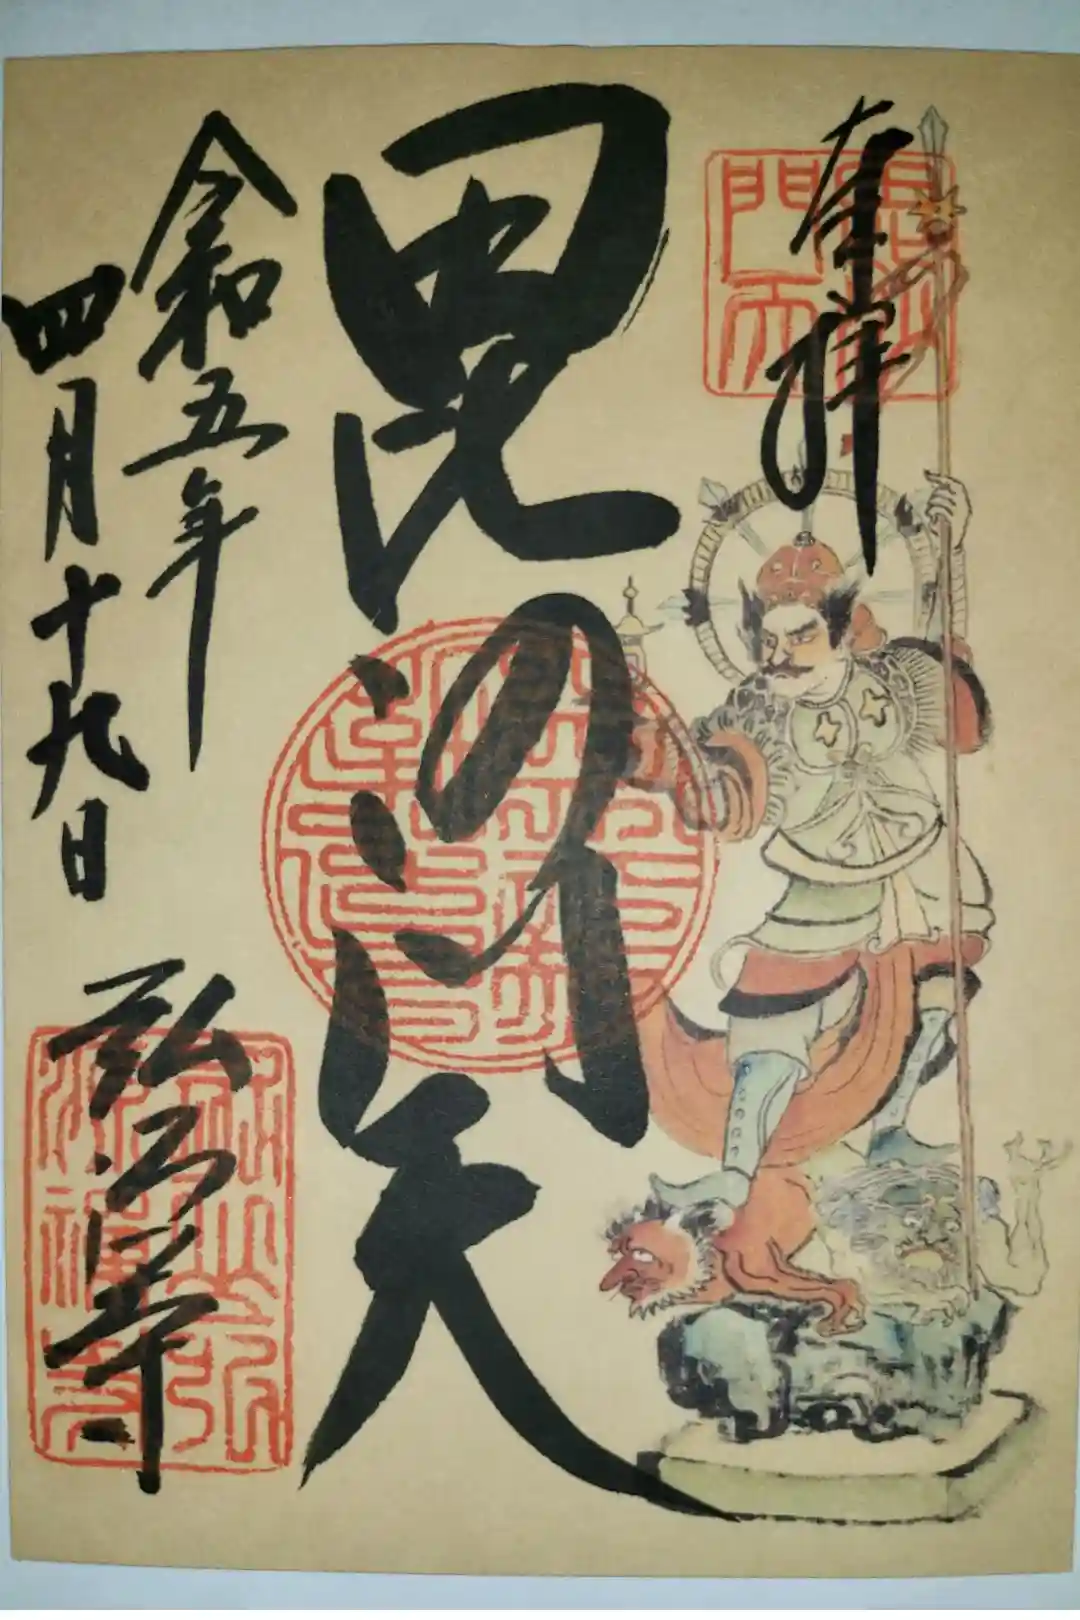 奉拝
毘沙門天
令和五年
四月十九日
弘法寺